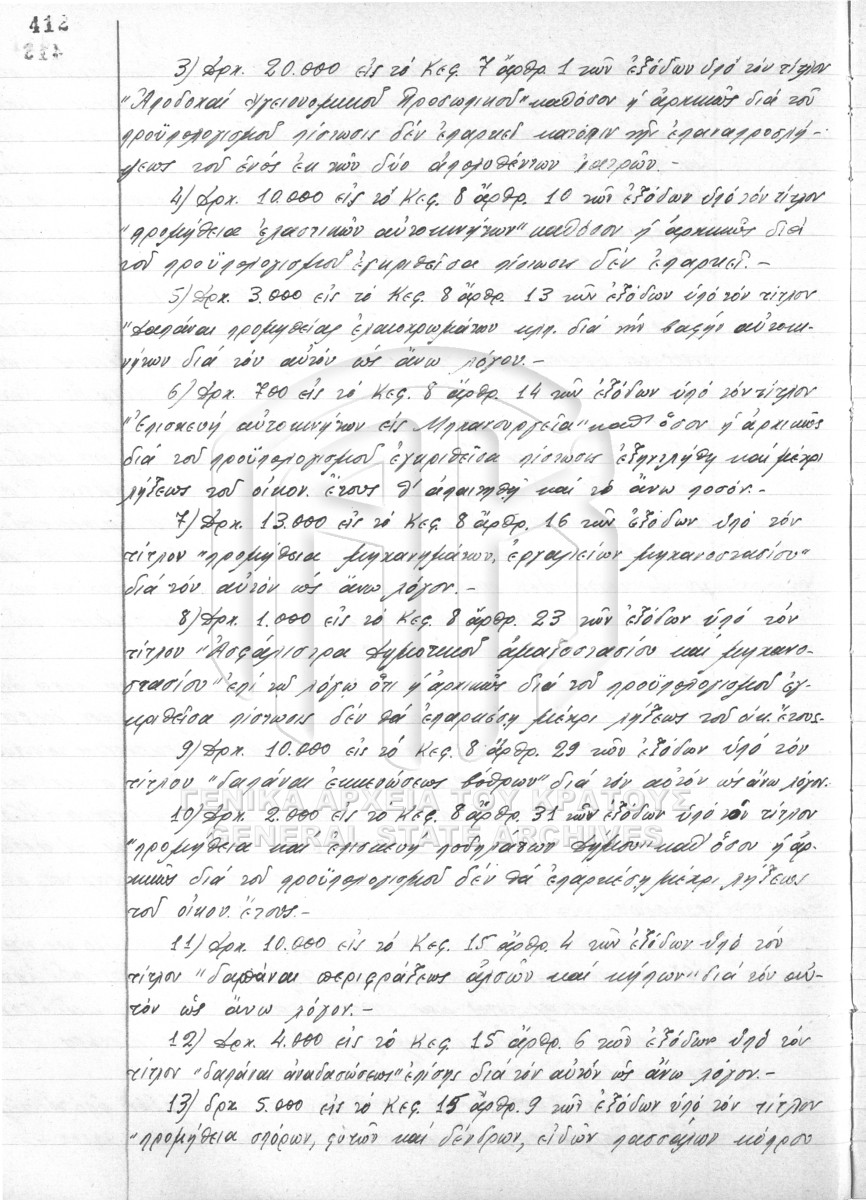 412
3) Δρχ. 20.000 εἰς τό Κεφ. 7 ἄρθρ. 1 τῶν ἐξόδων ὑπό τόν τίτλον
"Ἀποδοχαί Ὑγειονομικοῦ Προσωπικοῦ" καθόσον ἡ ἀρχικῶς διά τοῦ
προϋπολογισμοῦ πίστωσις δέν ἐπαρκεῖ κατόπιν τῆς ἐπαναπροσλή-
ψεως τοῦ ἑνός ἐκ τῶν δύο ἀπολυθέντων ἰατρῶν.-
4) Δρχ. 10.000 εἰς τό Κεφ. 8 ἄρθρ. 10 τῶν ἐξόδων ὑπό τόν τίτλον
"προμήθεια ἐλαστικῶν αὐτοκινήτων" καθόσον ἡ ἀρχικῶς διά
τοῦ προϋπολογισμοῦ ἐγκριθεῖσα πίστωσις δέν ἐπαρκεῖ.-
5) Δρχ. 3.000 εἰς τό Κεφ. 8 ἄρθρ. 13 τῶν ἐξόδων ὑπό τόν τίτλον
"Δαπάναι προμηθείας ἐλαιοχρωμάτων κλπ. διά τήν βαφήν αὐτοκι-
νήτων διά τόν αὐτόν ὡς ἄνω λόγον.-
6) Δρχ. 700 εἰς τό Κεφ. 8 ἄρθρ. 14 τῶν ἐξόδων ὑπό τόν τίτλον
"Ἐπισκευή αὐτοκινήτων εἰς Μηχανουργεῖα" καθ' ὅσον ἡ ἀρχικῶς
διά τοῦ προϋπολογισμοῦ ἐγκριθεῖσα πίστωσις ἐξηντλήθη καί μέχρι
λήξεως τοῦ οἰκον. ἔτους θ' ἀπαιτηθῇ καί τό ἄνω ποσόν.-
7) Δρχ. 13.000 εἰς τό Κεφ. 8 ἄρθρ. 16 τῶν ἐξόδων ὑπό τόν
τίτλον "προμήθεια μηχανημάτων, ἐργαλείων μηχανοστασίου"
διά τόν αὐτόν ὡς ἄνω λόγον.-
8) Δρχ. 1.000 εἰς τό Κεφ. 8 ἄρθρ. 23 τῶν ἐξόδων ὑπό τόν
τίτλον "Ἀσφάλιστρα Δημοτικοῦ ἁμαξοστασίου καί μηχανο-
στασίου" ἐπί τῷ λόγῳ ὅτι ἡ ἀρχικῶς διά τοῦ προϋπολογισμοῦ ἐγ-
κριθεῖσα πίστωσις δέν θά ἐπαρκέσῃ μέχρι λήξεως τοῦ οἰκ. ἔτους.-
9) Δρχ. 10.000 εἰς τό Κεφ. 8 ἄρθρ. 29 τῶν ἐξόδων ὑπό τόν
τίτλον "δαπάναι ἐκκενώσεως βόθρων" διά τόν αὐτόν ὡς ἄνω λόγον.
ΓΕΝΙΚΑ ΑΡΧΕΙΑ ΤΟΥ ΚΡΑΤΟΥΣ
10) Δρχ. 2.000 εἰς τό Κεφ. 8 ἄρθρ. 31 τῶν ἐξόδων ὑπό τόν τίτλον
GENERAL STATE ARCHIVES
"προμήθεια καί ἐπισκευή ποδηλάτων Δήμου" καθ' ὅσον ἡ ἀρ-
χικῶς διά τοῦ προϋπολογισμοῦ δέν θά ἐπαρκέσῃ μέχρι λήξεως
τοῦ οἰκον. ἔτους.-
11) Δρχ. 10.000 εἰς τό Κεφ. 15 ἄρθρ. 4 τῶν ἐξόδων ὑπό τόν
τίτλον "δαπάναι περιφράξεως ἀλσῶν καί κήπων" διά τόν αὐ-
τόν ὡς ἄνω λόγον.-
12) Δρχ. 4.000 εἰς τό Κεφ. 15 ἄρθρ. 6 τῶν ἐξόδων ὑπό τόν
τίτλον "δαπάναι ἀναδασώσεως" ἐπίσης διά τόν αὐτόν ὡς ἄνω λόγον.-
13) δρχ. 5.000 εἰς τό Κεφ. 15 ἄρθρ. 9 τῶν ἐξόδων ὑπό τόν τίτλον
"προμήθεια σπόρων, φυτῶν καί δένδρων, εἰδῶν πασσάλων κόπρου